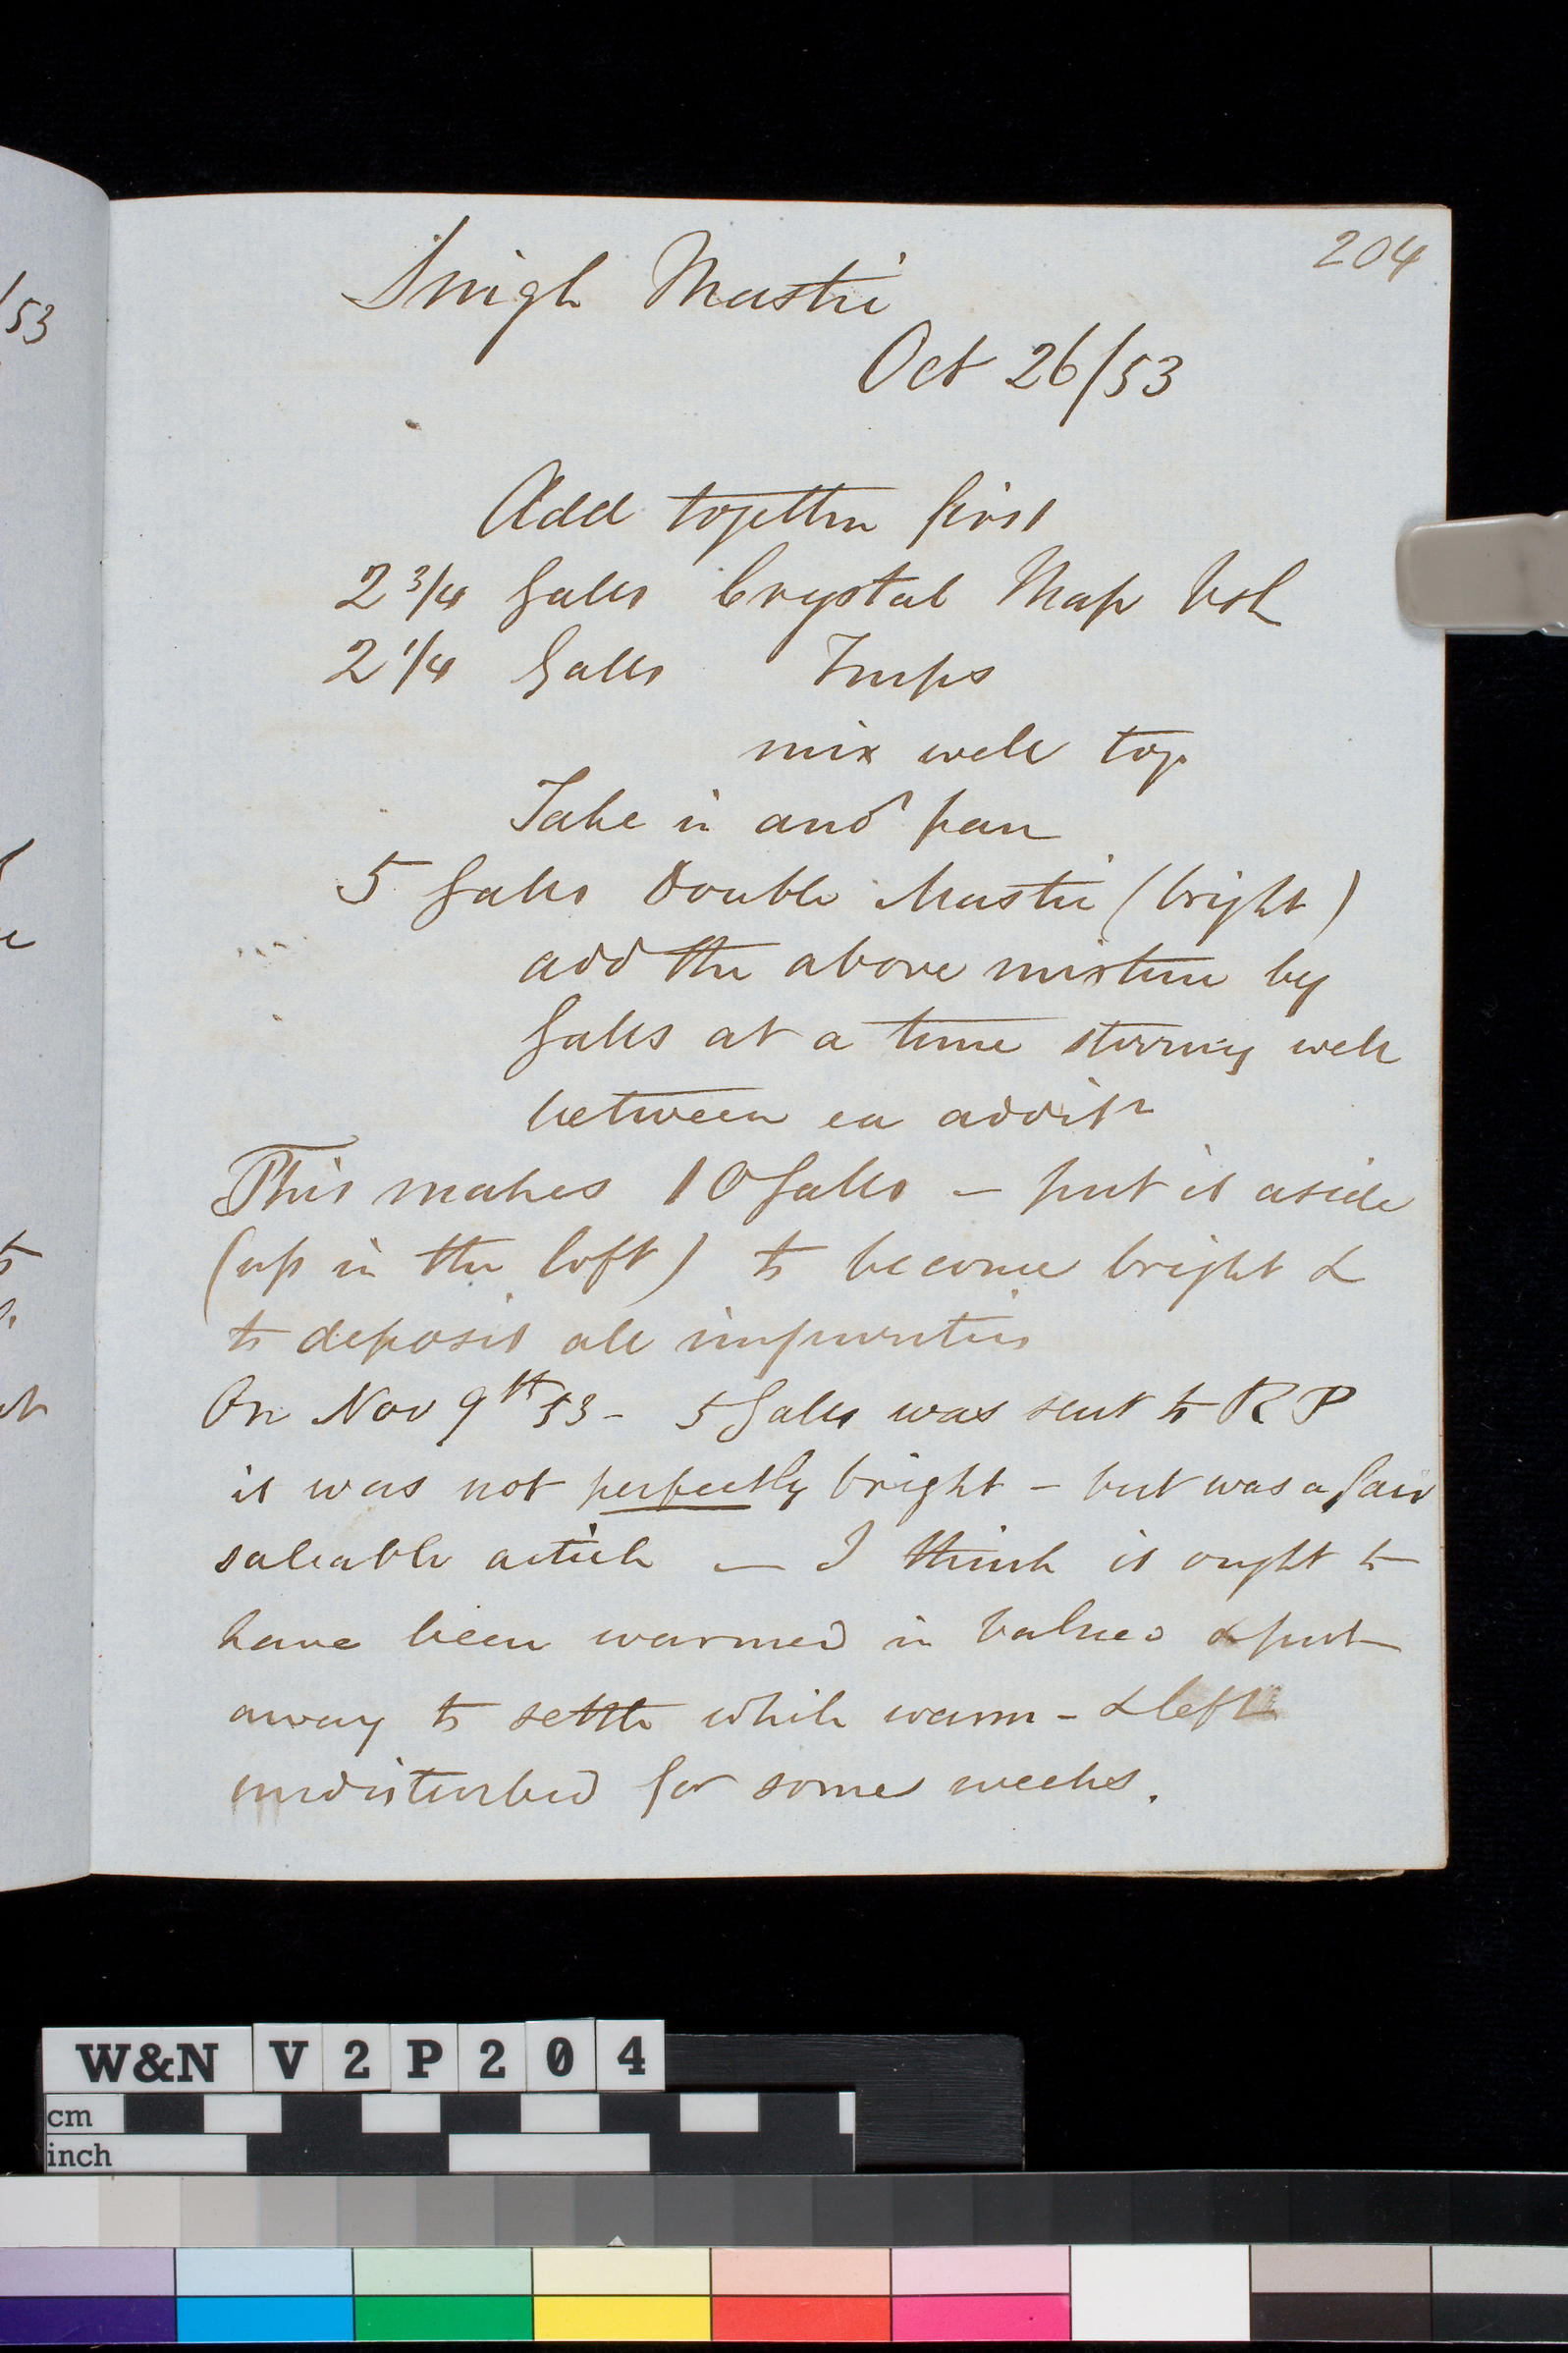 204
Single Mastic
Oct 26/53
Add together first
2 3/4 Galls Crystal Map Vsh
2 1/4 Galls Turps
mix well tog.
Take in anor pan
5 Galls double Mastic (bright)
add the above mixture by
Galls at a time stirring well
between ea additn
This makes 10 Galls — put it aside
(up in the loft) to become bright &
to deposit all impurities
On Nov 9th 53 - 5 Galls was sent to R P
it was not perfectly bright - but was a fair
saleable article — I think it ought to
have been warmed in balneo & put
away to settle while warm - & left
undisturbed for some weeks.
/53
W&N V2P204
cm
inch